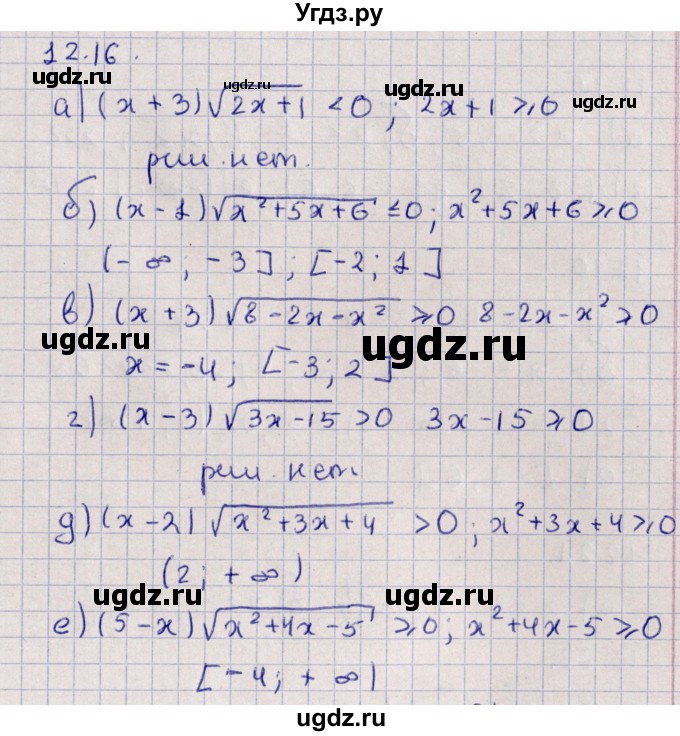 Угдз.ру
12.16.
ugdz.ru ugdz.ru ugdz.ru ugdz.ru
а) (x + 3)√2x+1 < 0 ; 2x+1 ⩾ 0
реш. нет.
б) (x - 1)√x²+5x+6 ≤ 0 ; x²+5x+6 ⩾ 0
(- ∞ ; - 3] ; [-2 ; 1]
в) (x + 3)√8-2x-x² ⩾ 0 8-2x-x² ⩾ 0
ugdz.ru ugdz.ru
x = -4 ; [-3 ; 2]
г) (x - 3)√3x-15 > 0 3x-15 ⩾ 0
реш. нет.
ugdz.ru
д) (x - 2) √x²+3x+4 > 0 ; x²+3x+4 ⩾ 0
(2 ; + ∞)
ugdz.ru ugdz.ru
е) (5 - x)√x²+4x-5 ⩾ 0 ; x²+4x-5 ⩾ 0
[-4 ; + ∞)
ugdz.ru
ugdz.ru